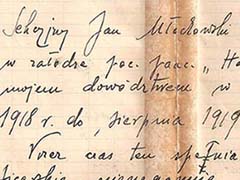 Sekcyjny Jan Młotkowski
w załodze poc. panc. „Ha
mojem dowództwem w
1918 r. do, sierpnia 1919
Przez czas ten spełnia